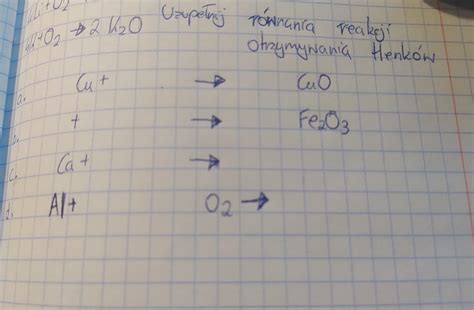 +O₂
+O₂ → 2 K₂O Uzupełnij równania reakcji
otrzymywania tlenków
a. Cu + → CuO
+ → Fe₂O₃
c. Ca + →
d. Al + O₂ →